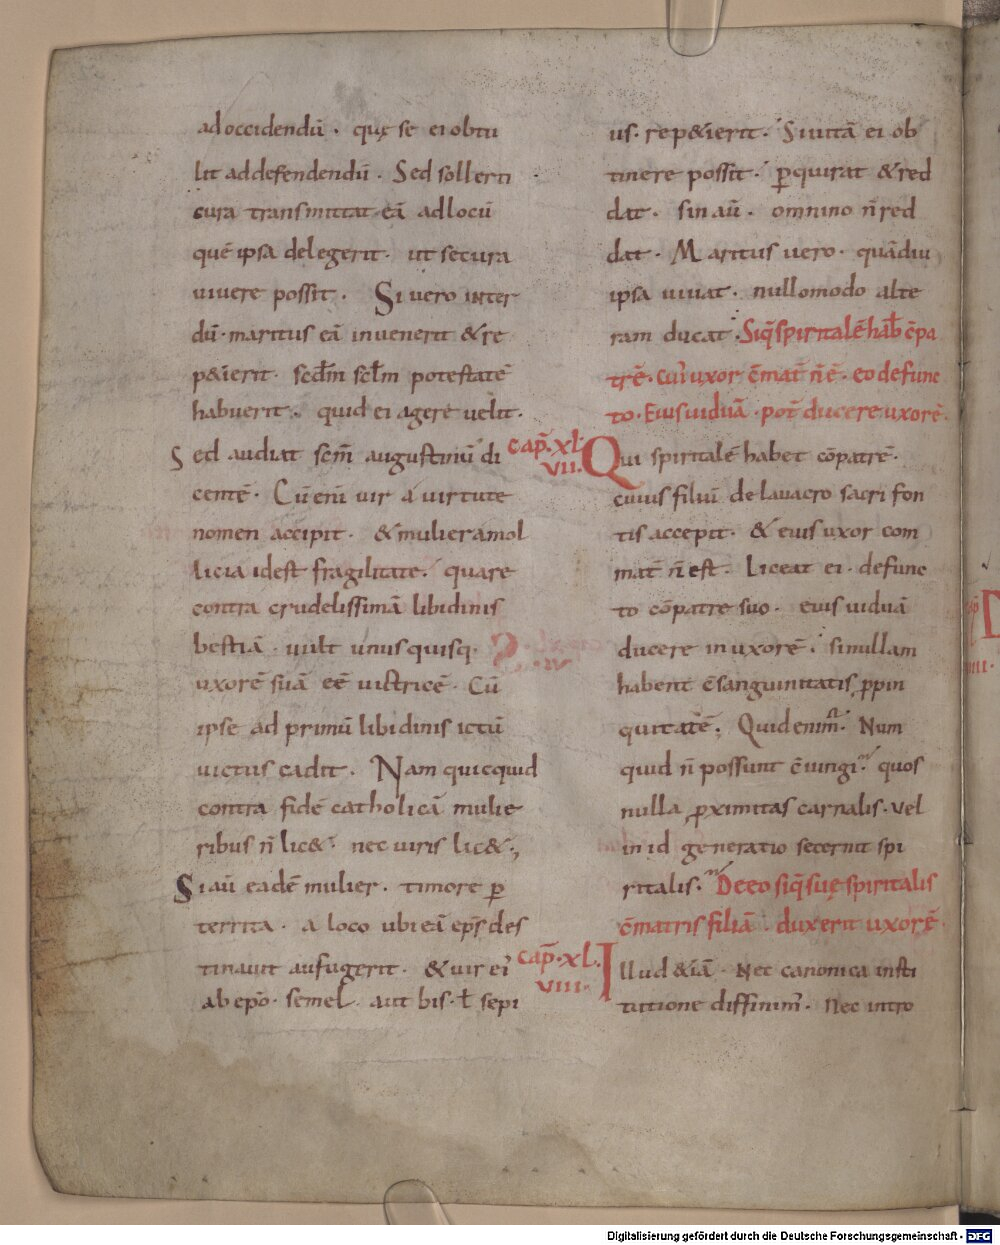 ad occidendū . quę se ei obtu
lit ad defendendū . Sed sollerti
cura transmittat eā ad locū
quē ipsa delegerit . ut secura
uiuere possit . Si uero inter
dū . maritus eā inuenerit & re
p&ierit . scdm sclm potestatē
habuerit . quid ei agere uelit .
Sed audiat scm̄ augustinū di
centē . Cū enī uir a uirtute
nomen accipit . & mulier a mol
licia id est fragilitate . quare
contra crudelissimā libidinis
bestiā . uult unusquisq.
uxorē suā eē uictricē . Cū
ipse ad primū libidinis ictū
uictus cadit . Nam quicquid
contra fidē catholicā mulie
ribus n̄ lic& . nec uiris lic& .,
Si aū eadē mulier . timore p̱
territa . a loco ubi eā ep̄s des
tinauit aufugerit . & uir eī
ab ep̄o . semel . aut bis . ł sepi
us . rep&ierit . Si uitā ei ob
tinere possit . p̱quirat & red
dat . sin aū . omnino n̄ red
dat . Maritus uero . quādiu
ipsa uiuat . nullomodo alte
ram ducat . Siq̄s spiritalē hab̄ c̄pa
trē . cui' uxor c̄mat̄ n̄ ē . eo defunc
to . Eius uiduā . pot̄ ducere uxorē .
cap̄ . xl .
vii .
Qui spiritalē habet cōpatrē .
cuius filiū de lauacro sacri fon
tis accepit . & eius uxor com
mat̄ n̄ est . Liceat ei . defunc
to cōpatre suo . eius uiduā
ducere in uxorē . si nullam
habent c̄sanguinitatis p̱pin
quitatē ; Quid enim . Num
quid n̄ possunt c̄iungi . quos
nulla p̱ximitas carnalis . vel
in id generatio secernit spi
ritalis . De eo siq̄s suę spiritalis
c̄matris filiā . duxerit uxorē .
cap̄ . xl .
viii .
Illud &iā . Nec canonica insti
tutione diffinim' . nec intro
Digitalisierung gefördert durch die Deutsche Forschungsgemeinschaft - DFG